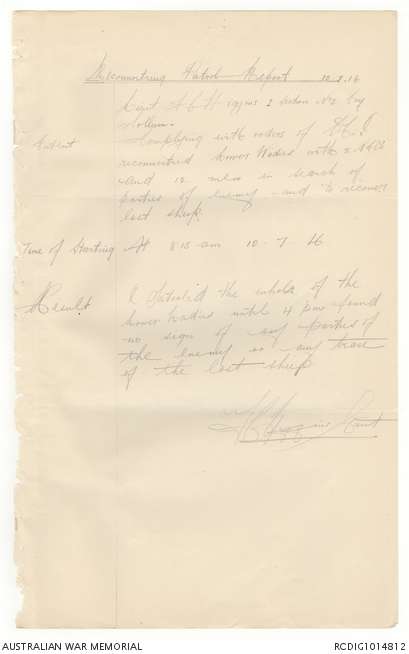 Reconnoitring Patrol Report 10.7.16
Lieut A C Higgins 2 section No 2 Coy
Patrol Complying with orders of
reconnoitred lower Wadies with 2 NCOs
and 12 men in search of
parties of enemy and to recover
lost sheep.
Time of Starting At 8 15 am 10 - 7 - 16
Result I Patrolled the whole of the
lower Wadies until 4 pm found
no sign of any parties of
the enemy or any trace
of the lost sheep
Lieut
AUSTRALIAN WAR MEMORIAL
RCDIG1014812